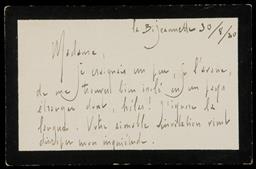 la B. Jeannette 30/8/20
Madame,
Je craignais un peu, je l'avoue,
de me trouver bien isolé en un pays
étranger dont, hélas ! j'ignore la
langue. Votre aimable invitation vient
dissiper mon inquiétude.